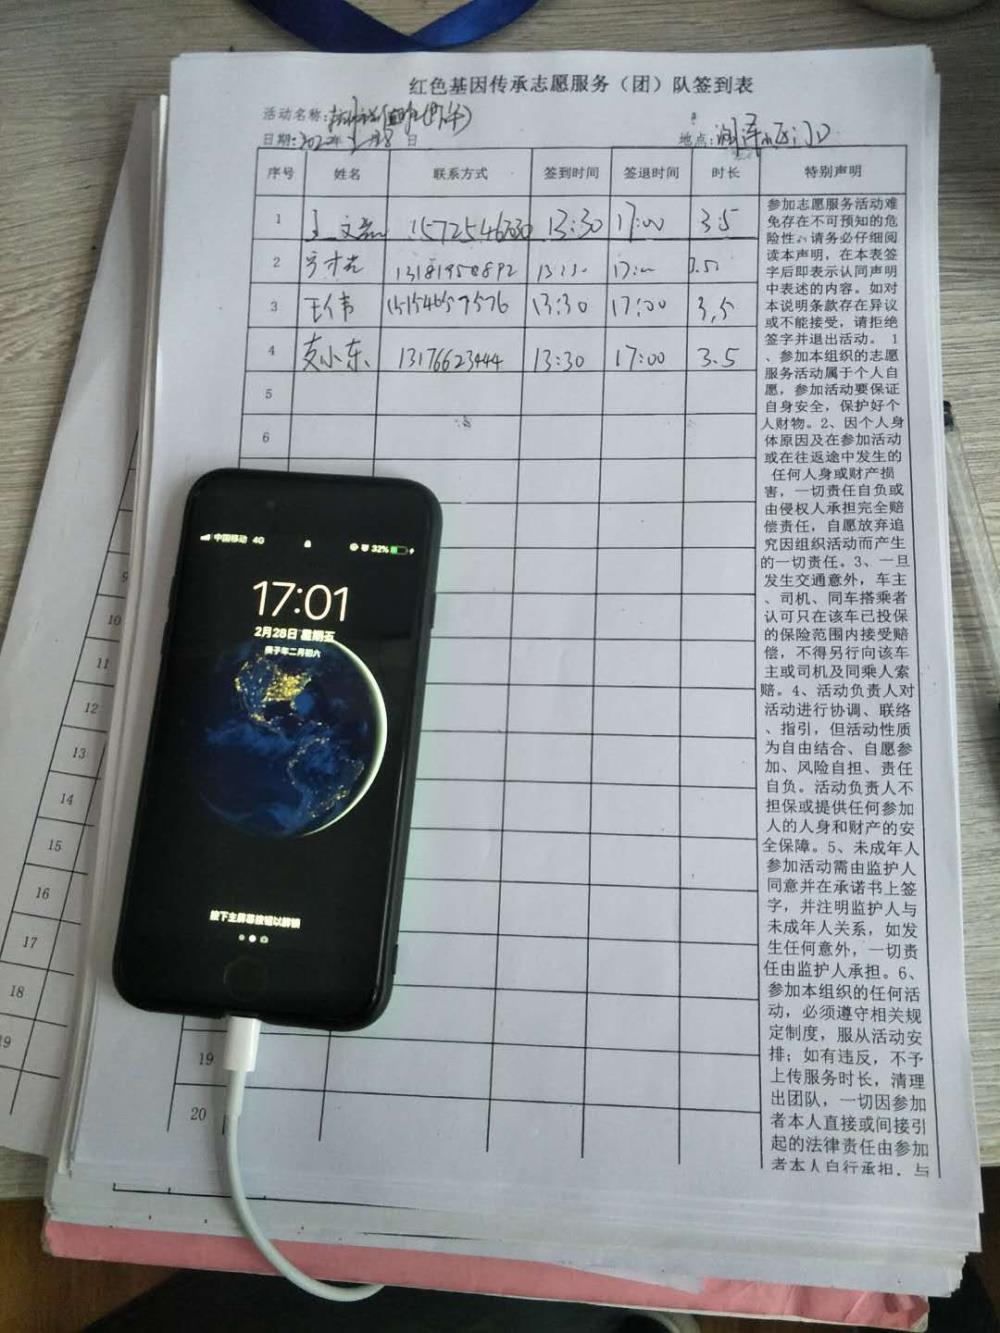 红色基因传承志愿服务（团）队签到表
活动名称:
日期:2020年2月28日
地点:
序号 姓名 联系方式 签到时间 签退时间 时长 特别声明
1 15725467030 13:30 17:00 3.5
2 13181950892 17:00 3.5
3 王伟 15154657576 13:30 17:00 3.5
4 支小东 13176623444 13:30 17:00 3.5
5
6
参加志愿服务活动难
免存在不可预知的危
险性，请务必仔细阅
读本声明，在本表签
字后即表示认同声明
中表述的内容。如对
本说明条款存在异议
或不能接受，请拒绝
签字并退出活动。 1
、参加本组织的志愿
服务活动属于个人自
愿，参加活动要保证
自身安全，保护好个
人财物。2、因个人身
体原因及在参加活动
或在往返途中发生的
任何人身或财产损
害，一切责任自负或
由侵权人承担完全赔
偿责任，自愿放弃追
究因组织活动而产生
的一切责任。3、一旦
发生交通意外，车主
、司机、同车搭乘者
认可只在该车已投保
的保险范围内接受赔
偿，不得另行向该车
主或司机及同乘人索
赔。4、活动负责人对
活动进行协调、联络
、指引，但活动性质
为自由结合、自愿参
加、风险自担、责任
自负。活动负责人不
担保或提供任何参加
人的人身和财产的安
全保障。5、未成年人
参加活动需由监护人
同意并在承诺书上签
字，并注明监护人与
未成年人关系，如发
生任何意外，一切责
任由监护人承担。6、
参加本组织的任何活
动，必须遵守相关规
定制度，服从活动安
排；如有违反，不予
上传服务时长，清理
出团队，一切因参加
者本人直接或间接引
起的法律责任由参加
者本人自行承担，与
19
20
中国移动 4G 32%
17:01
2月28日 星期五
庚子年二月初六
按下主屏幕按钮以解锁
9
10
11
12
13
14
15
16
17
18
19